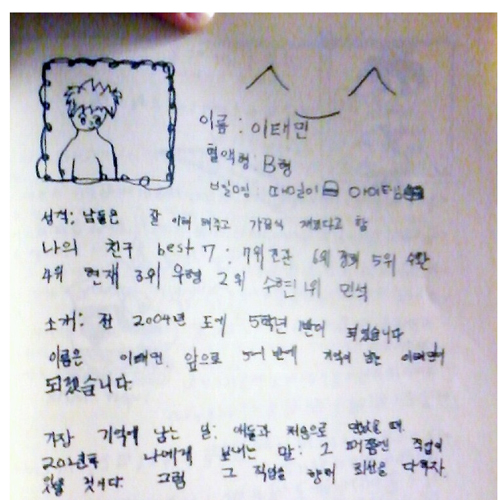 이름 : 이태민
혈액형 : B형
성격: 남들은 잘 이해 해주고 가끔씩 재밌다고 함
나의 친구 best 7 : 7위 진관 6위 5위
4위 현재 3위 우형 2위 수현 1위 민석
소개: 전 2004년 도에 5학년 1반이 되었습니다
이름은 이태민. 앞으로 5-1 반에 기억에 남는 이태민이
되겠습니다.
가장 기억에 남는 일: 애들과 처음으로 만났을 때.
나에게 보내는 말: 그 때쯤엔 직업이
있을 것이다 그럼 그 직업을 향해 최선을 다하자.